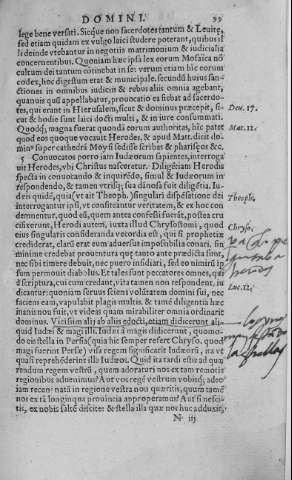 DOMINI. 99
lege bene versati. Sicque non sacerdotes tantum & Leuitę,
sed etiam quidam ex vulgo laici studere poterant, quibus il
li deinde vtebantur in negotiis matrimonium & iudicialia
concernentibus. Quoniam hæc ipsa lex eorum Mosaica nō
cultum dei tantum connebat in se: verum etiam hic eorum
codex, hoc digestum erat & municipale. secundū huius san-
ctiones in omnibus iudiciis & rebus aliis omnia agebant,
quanuis quā appellabatur, prouocatio ea fiebat ad sacerdo-
tes, qui erant in Hierusalem, sicut & dominus præcepit, si-
cut & hodie sunt laici docti multi, & in iure consummati. Deu. 17.
Quodq́; magna fuerat quondā eorum authoritas, hic patet Mat. 12.
quod eos quoque vocauit Herodes, & apud Matt. dixit do-
min⁹ super cathedrā Moysi sedisse scribas & pharisęos &c.
5 Conuocatos porro iam Iudæorum sapientes, interroga-
uit Herodes, vbi Christus nasceretur. Diligētiam Herodis
specta in conuocando & inquirēdo, simul & Iudæorum in
respondendo, & tamen vtrisq́; sua dānosa fuit diligētia. Iu-
dæis quidē, quia (vt ait Theoph.) singulari dispēsatione dei Theoph.
interrogantur ipsi, vt confiterentur veritatem, & ex hoc con
demnentur, quod eū, quem antea confessi fuerāt, postea cru
cifixerunt, Herodi autem, iuxta illud Chrysostomi, quod Chryso.
eius singularis consideranda vecordia est, qui si prophetiæ
crediderat, clarū erat eum aduersus impossibilia conari. sin
minime credebat prouentura que tanto ante prædicta sint,
nec sibi timere debuit, nec puero insidiari, sed eo nimirū ip
sum permouit diabolus. Et tales sunt peccatores omnes, qui
ē scriptura, cui cum credant, vita tamen non respondent, iu
dicantur: quoniam seruus sciens volūtatem domini sui, nec Luc. 12.
faciens eam, vapulabit plagis multis. & tamē diligentiā hæc
inanis non fuit, vt videas quam mirabiliter omnia ordinarit
dominus. Vicissim alij ab aliis edocti, etiam didicerunt ali-
quid Iudæi & magi illi. Iudæi ā magis didicerunt, quomo-
do in stella in Persia (quia hic semper refert Chryso. quod
magi fuerint Persæ) visa regem significarit Iudæorū, ita ve
quasi reprehenderint illi Iudæos. Quid ita tardi estis ad quæ
rendum regem vestrū, quem adoraturi nos ex tam remotis
regionibus aduenimus? Aut vos regē vestrum vobiscū, adeo
iam recens natū in regione vestra non queritis, quem tamē
nos ex tā longinqua prouincia apropęramus? Aut si nesci-
tis, ex nobis saltē discite: & stella illa quæ nos huc adduxit,
N iij